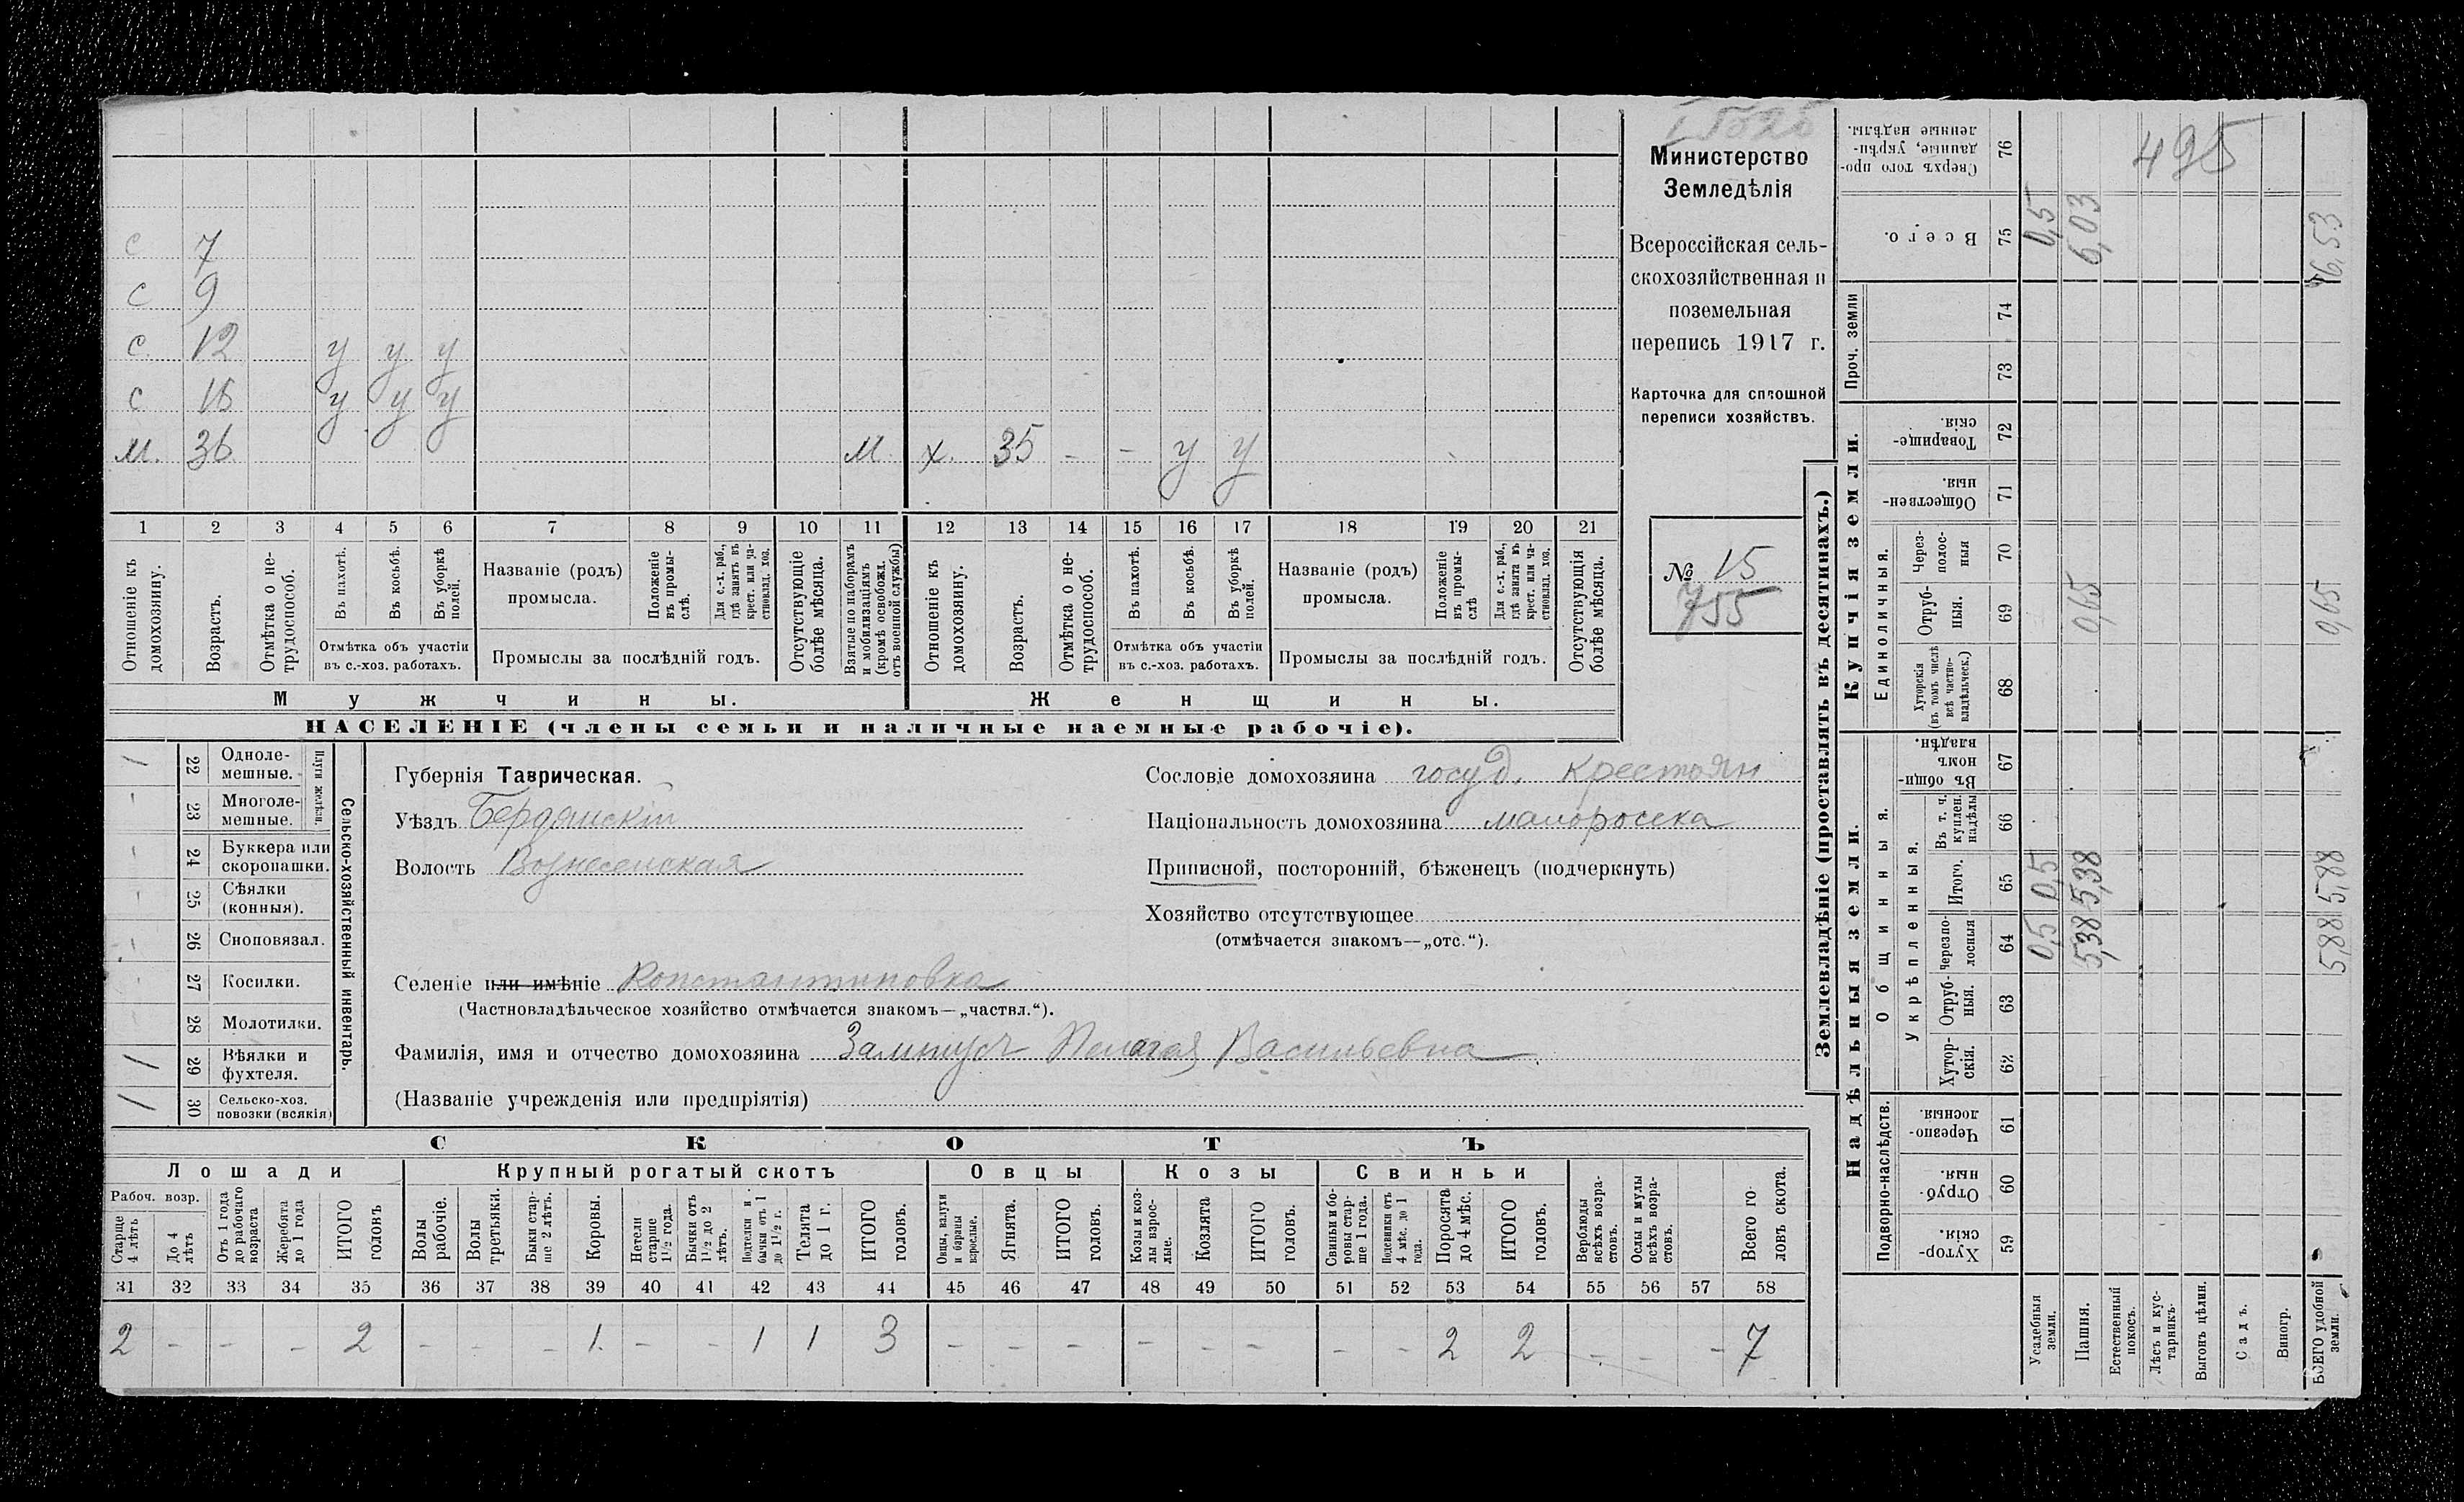 Министерство
Земледѣлія
Всероссійская сель-
скохозяйственная и
поземельная
перепись 1917 г.
Карточка для сплошной
переписи хозяйствъ.
№ 15
755
с 7
с 9
с. 12 у у у
с 15 у у у
м. 36 м х. 35 - - у у
1 2 3 4 5 6 7 8 9 10 11 12 13 14 15 16 17 18 19 20 21
Отношеніе къ домохозяину.
Возрастъ.
Отмѣтка о не-трудоспособ.
Въ пахотѣ.
Въ косьбѣ.
Въ уборкѣ полей.
Отмѣтка объ участіи
въ с.-хоз. работахъ.
Названіе (родъ)
промысла.
Положеніе въ промы-слѣ.
Для с.-х. раб., гдѣ занятъ въ крест. или ча-стновлад. хоз.
Промыслы за послѣдній годъ.
Отсутствующіе болѣе мѣсяца.
Взятые по наборамъ и мобилизаціямъ (кромѣ освобожд. отъ военной службы)
Отношеніе къ домохозяину.
Возрастъ.
Отмѣтка о не-трудоспособ.
Въ пахотѣ.
Въ косьбѣ.
Въ уборкѣ полей.
Отмѣтка объ участіи
въ с.-хоз. работахъ.
Названіе (родъ)
промысла.
Положеніе въ промы-слѣ
Для с.-х. раб., гдѣ занята въ крест. или ча-стновлад. хоз.
Промыслы за послѣдній годъ.
Отсутствующія болѣе мѣсяца.
Мужчины. Женщины.
НАСЕЛЕНІЕ (члены семьи и наличные наемные рабочіе).
Сельско-хозяйственный инвентарь.
Плуги желѣзн.
/ 22 Одноле-мешные.
- 23 Многоле-мешные.
- 24 Буккера или скоропашки.
- 25 Сѣялки (конныя).
- 26 Сноповязал.
- 27 Косилки.
- 28 Молотилки.
/ 29 Вѣялки и фухтеля.
/ 30 Сельско-хоз. повозки (всякія)
Губернія Таврическая.
Уѣздъ Бердянскій
Волость Вознесенская
Селеніе или имѣніе Константиновка
(Частновладѣльческое хозяйство отмѣчается знакомъ—„частвл.“).
Фамилія, имя и отчество домохозяина Пелагея Васильевна
(Названіе учрежденія или предпріятія)
Сословіе домохозяина госуд. крестьян
Національность домохозяина малоросска
Приписной, посторонній, бѣженецъ (подчеркнуть)
Хозяйство отсутствующее
(отмѣчается знакомъ—„отс.“).
СКОТЪ
Лошади Крупный рогатый скотъ Овцы Козы Свиньи
Рабоч. возр.
Старше 4 лѣтъ
До 4 лѣтъ
Отъ 1 года до рабочаго возраста
Жеребята до 1 года
ИТОГО головъ
Волы рабочіе.
Волы третьяки.
Быки стар-ше 2 лѣтъ.
Коровы.
Нетели старше 1½ года.
Бычки отъ 1½ до 2 лѣтъ.
Подтелки и бычки отъ 1 до 1½ г.
Телята до 1 г.
ИТОГО головъ.
Овцы, валухи и бараны взрослые.
Ягнята.
ИТОГО головъ.
Козы и коз-лы взрос-лые.
Козлята
ИТОГО головъ.
Свиньи и бо-ровы стар-ше 1 года.
Подсвинки отъ 4 мѣс. до 1 года.
Поросята до 4 мѣс.
ИТОГО головъ.
Верблюды всѣхъ возра-стовъ.
Ослы и мулы всѣхъ возра-стовъ.
Всего го-ловъ скота.
31 32 33 34 35 36 37 38 39 40 41 42 43 44 45 46 47 48 49 50 51 52 53 54 55 56 57 58
2 - - - 2 - - - 1 - - 1 1 3 - - - - - - - - 2 2 - - - 7
Землевладѣніе (проставлять въ десятинахъ.)
Надѣльныя земли. Купчія земли. Проч. земли
Подворно-наслѣдств.
Общинныя.
Укрѣпленныя.
Единоличныя.
Хутор-скія. 59
Отруб-ныя. 60
Черезпо-лосныя. 61
Хутор-скія. 62
Отруб-ныя. 63
Черезпо-лосныя 64
Итого. 65
Въ т. ч. куплен. надѣлы 66
Въ общи-номъ владѣн. 67
Хуторскія (въ томъ числѣ всѣ частно-владѣльческ.) 68
Отруб-ныя. 69
Через-полос-ныя 70
Обществен-ныя. 71
Товарище-скія. 72
73
74
Всего. 75
Сверхъ того про-данные, укрѣп-ленные надѣлы. 76
Усадебныя земли. 0,5 0,5 0,5
Пашня. 5,38 5,38 0,65 6,03
Естественный покосъ.
Лѣсъ и кус-тарникъ.
Выгонъ цѣлин.
Садъ.
Виногр.
ВСЕГО удобной земли. 5,88 5,88 0,65 6,53
495